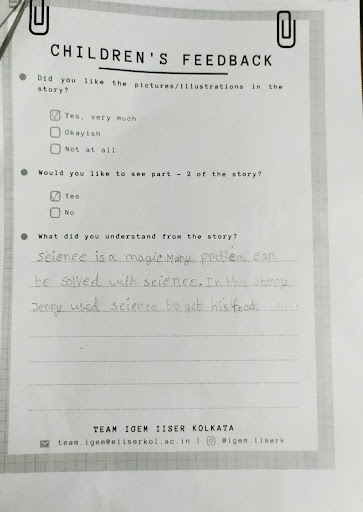 CHILDREN'S FEEDBACK
Did you like the pictures/illustrations in the
story?
Yes, very much
Okayish
Not at all
Would you like to see part - 2 of the story?
Yes
No
What did you understand from the story?
Science is a magic. Many problem can
be solved with science. In this
Jenny used science to get his food.
TEAM IGEM IISER KOLKATA
team.igem@eiiserkol.ac.in | @igem.iiserk